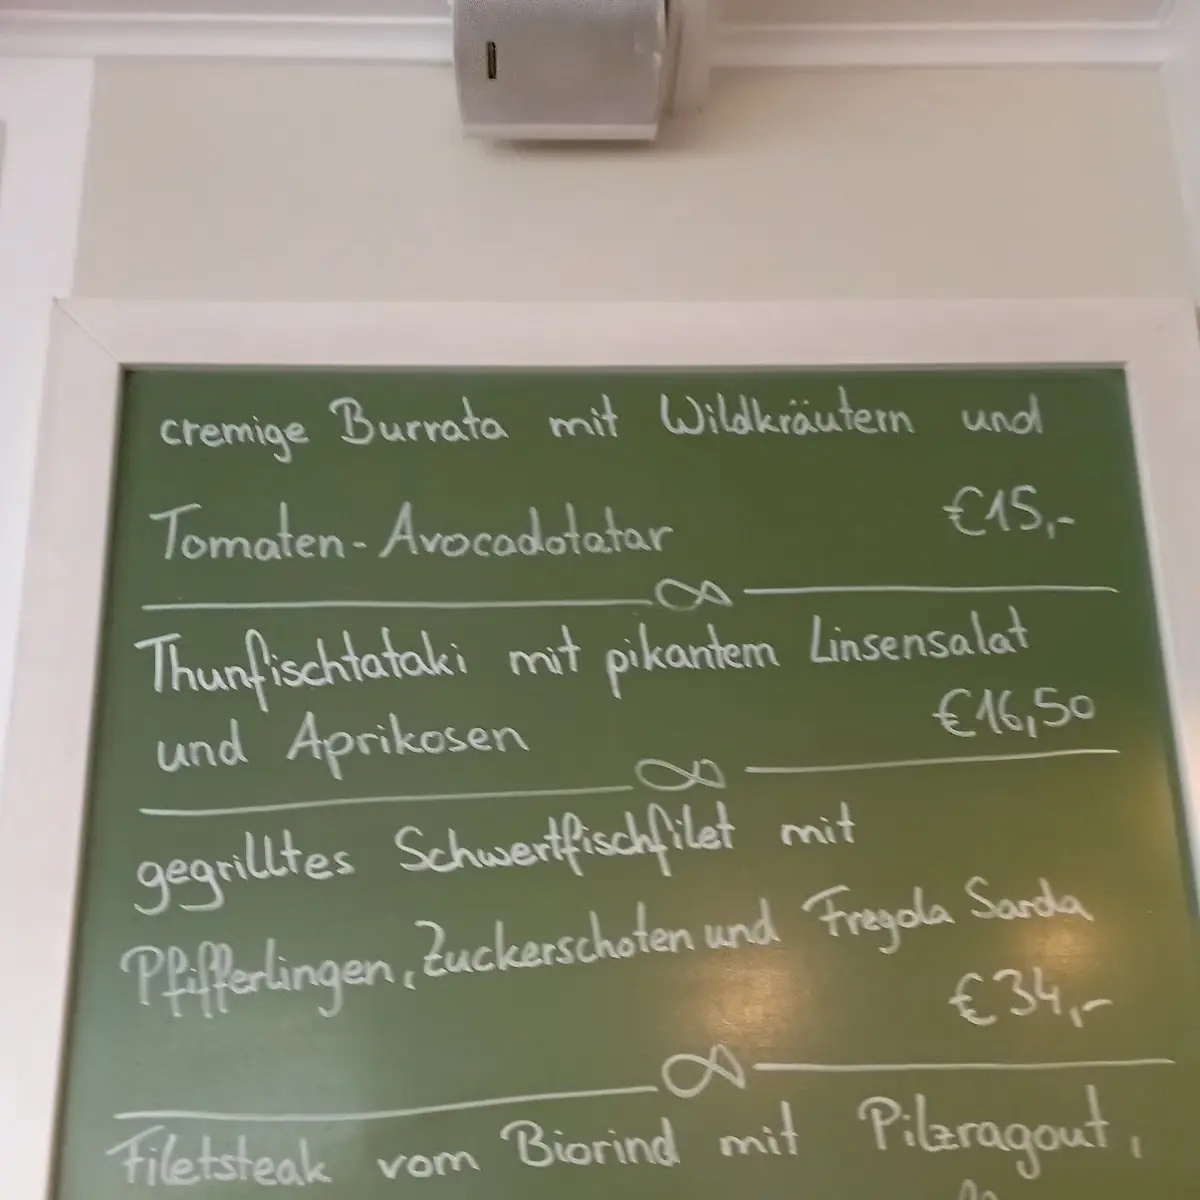 cremige Burrata mit Wildkräutern und
Tomaten-Avocadotatar €15,-
Thunfischtataki mit pikantem Linsensalat
und Aprikosen €16,50
gegrilltes Schwertfischfilet mit
Pfifferlingen, Zuckerschoten und Fregola Sarda
€34,-
Filetsteak vom Biorind mit Pilzragout,